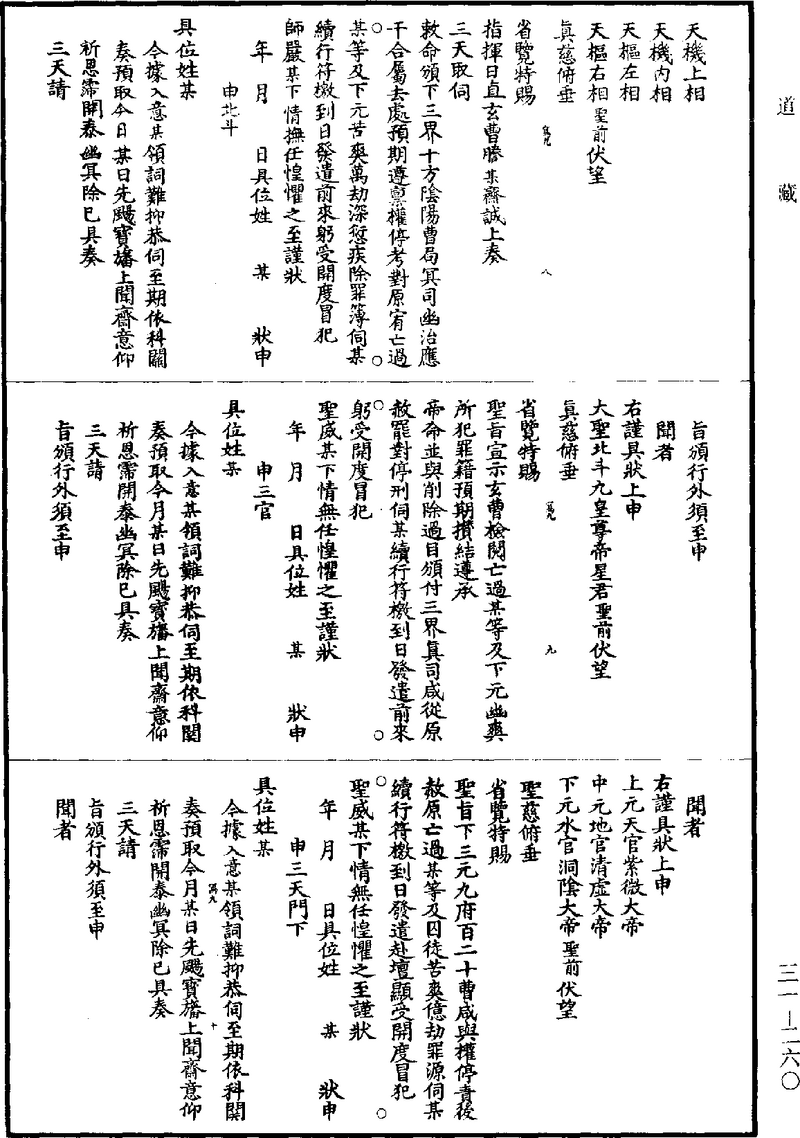 道藏
天機上相
天機內相
天樞左相
天樞右相聖前伏望
眞慈俯垂
省覽特賜
指揮日直玄曹勝某齋誠上奏
三天取伺
敕命頒下三界十方陰陽曹局冥司幽治應
干合屬去處預期遵稟權停考對原宥亡過
某等及下元苦爽萬劫深愆疾除罪簿伺某
續行符檄到日發遣前來躬受開度冒犯
師嚴某下情撫任惶懼之至謹狀
年 月 日具位姓 某 狀申
申北斗
具位姓某
今據入意某領詞難抑恭伺至期依科關
奏預取今日某日先颺寶旛上聞齋意仰
祈恩霈開泰幽冥除已具奏
三天請
旨頒行外須至申
聞者
右謹具狀上申
大聖北斗九皇尊帝星君聖前伏望
眞慈俯垂
省覽特賜
聖旨宣示玄曹檢閱亡過某等及下元幽爽
所犯罪籍預期攢結遵承
帝命並與削除過目頒付三界眞司咸從原
赦罷對停刑伺某續行符檄到日發遣前來
躬受開度冒犯
聖威某下情無任惶懼之至謹狀
年 月 日具位姓 某 狀申
申三官
具位姓某
今據入意某領詞難抑恭伺至期依科關
奏預取今月某日先颺寶旛上聞齋意仰
祈恩霈開泰幽冥除已具奏
三天請
旨頒行外須至申
聞者
右謹具狀上申
上元天官紫微大帝
中元地官清虛大帝
下元水官洞陰大帝聖前伏望
聖慈俯垂
省覽特賜
聖旨下三元九府百二十曹咸與權停責後
赦原亡過某等及囚徒苦爽億劫罪源伺某
續行符檄到日發遣赴壇顯受開度冒犯
聖威某下情無任惶懼之至謹狀
年 月 日具位姓 某 狀申
申三天門下
具位姓某
今據入意某領詞難抑恭伺至期依科關
奏預取今月某日先颺寶旛上聞齋意仰
祈恩霈開泰幽冥除已具奏
三天請
旨頒行外須至申
聞者
三一—二六〇